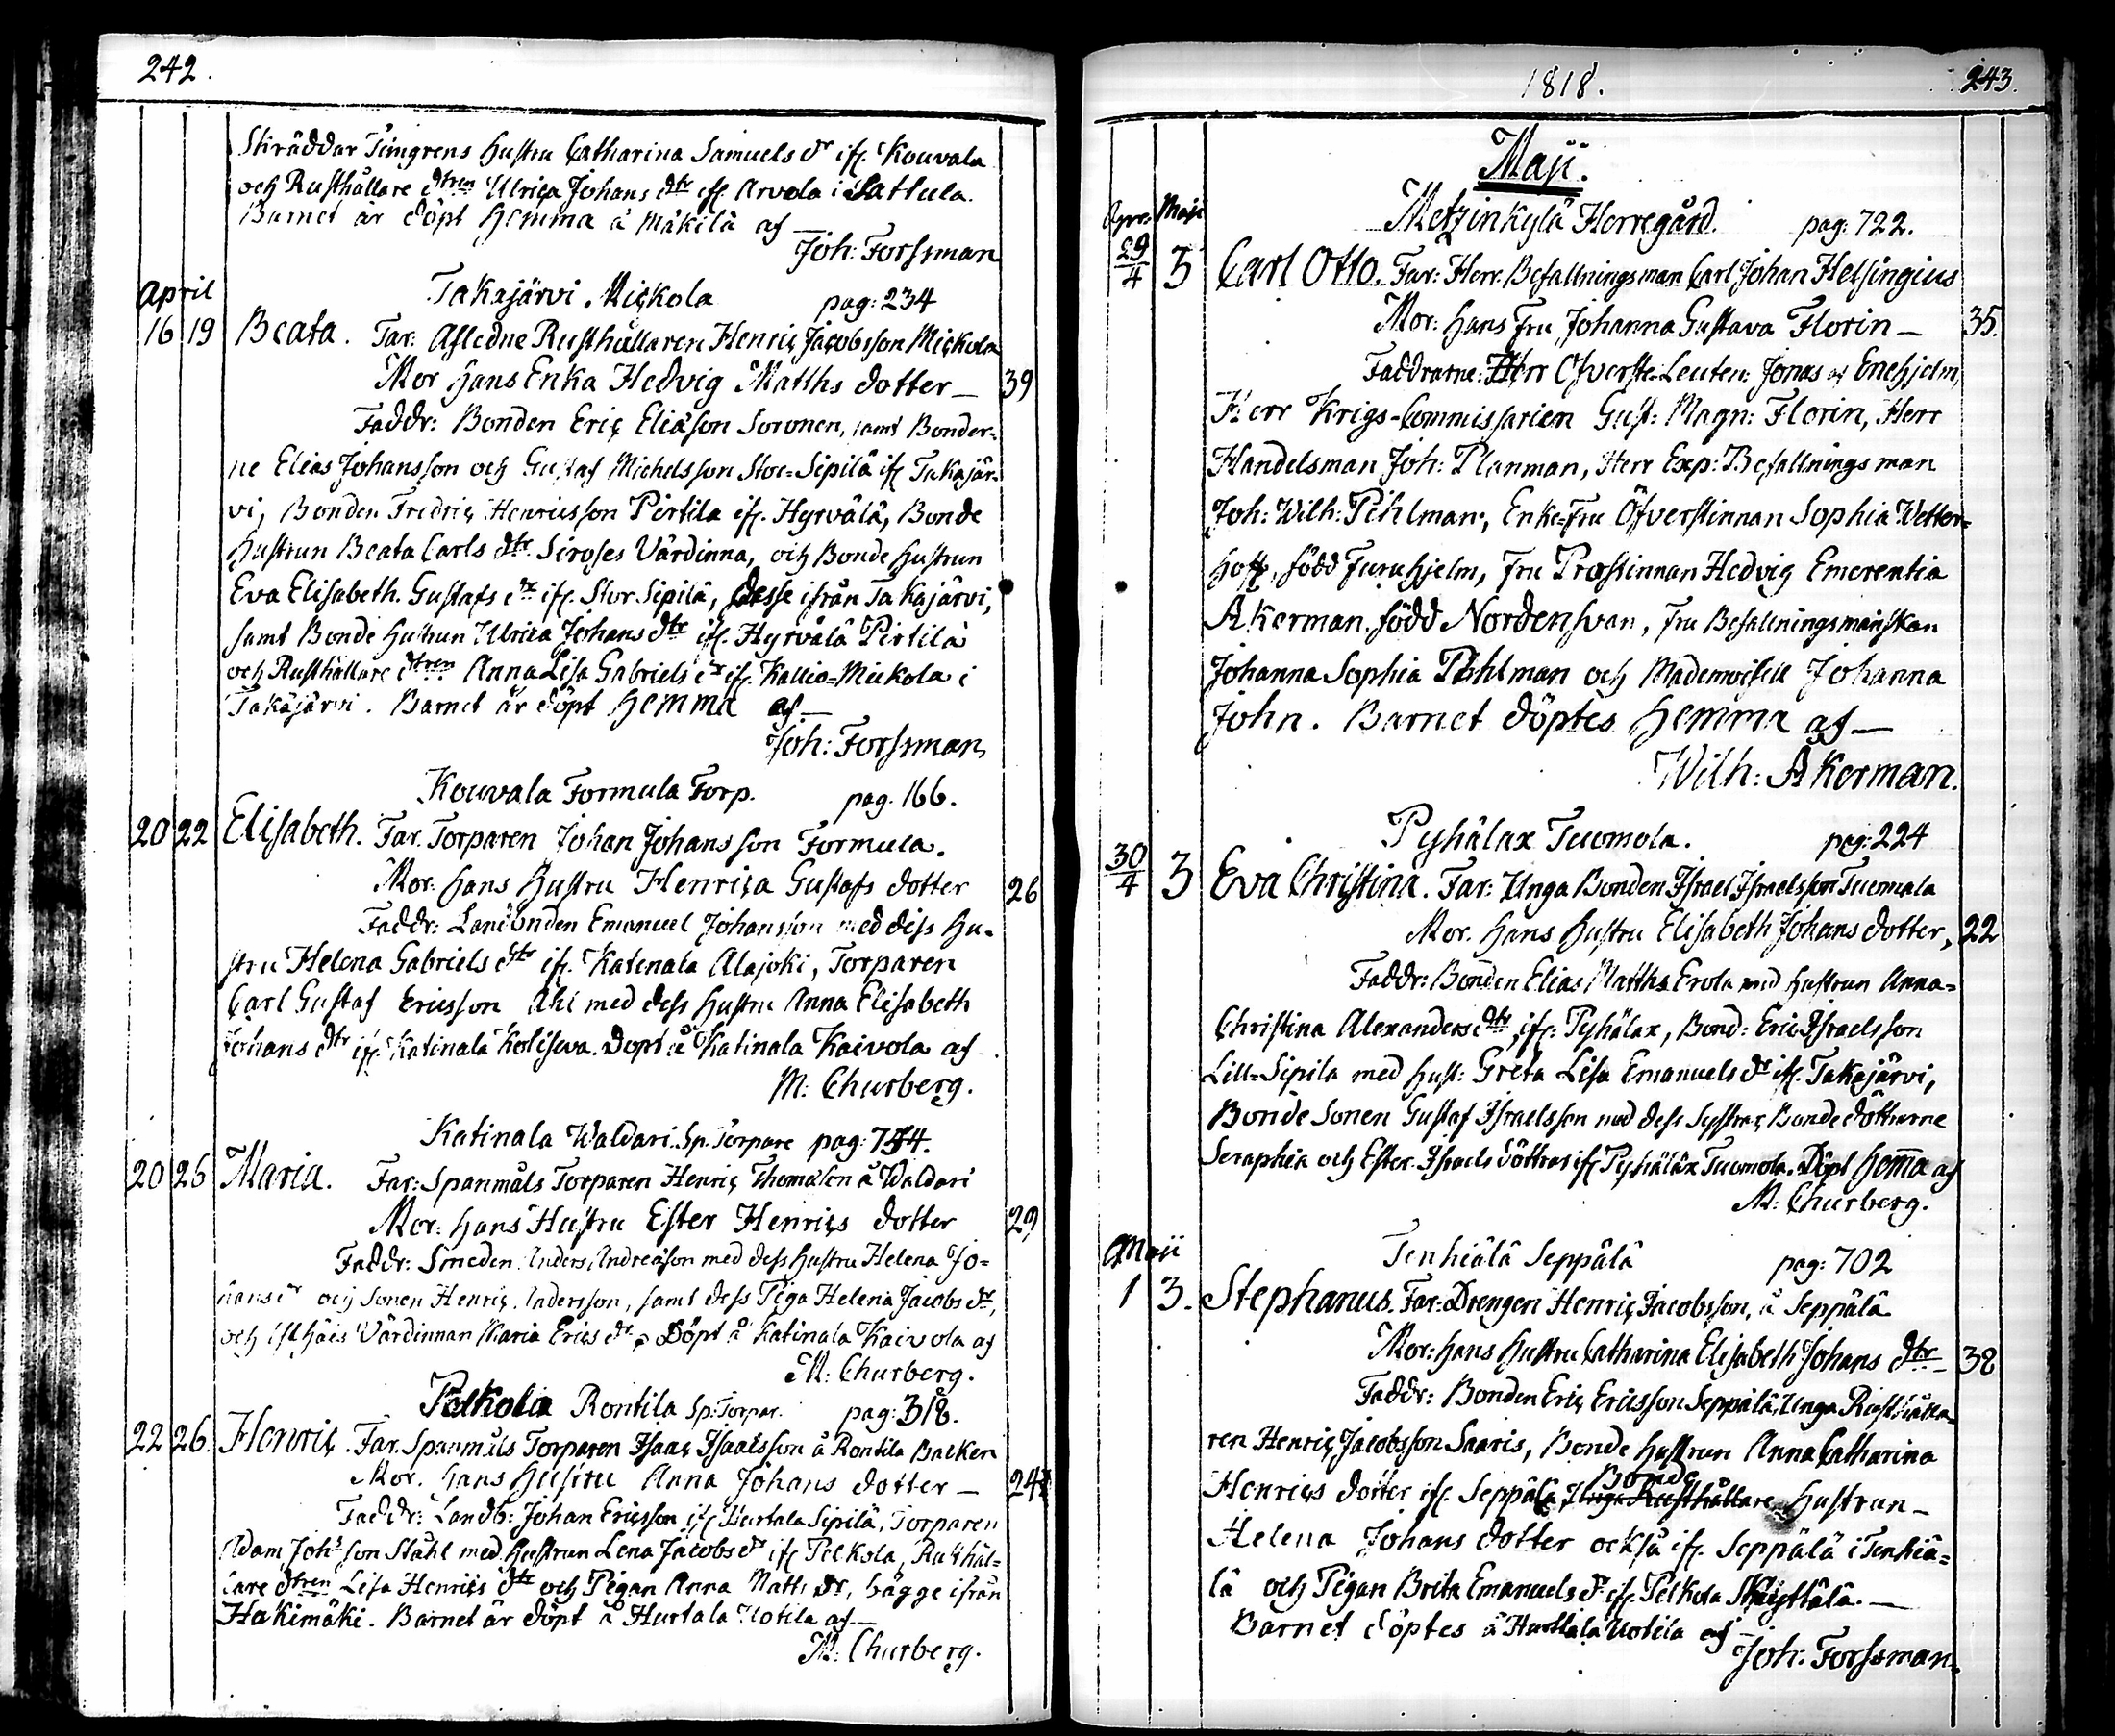 242.
Skräddar Timgrens Hustru Catharina Samuels dr ifr. Kouvala
och Rusthållare dtren Ulrica Johans dtr ifr. Arvola i Sattula.
Barnet är döpt hemma å Mäkilä af
Joh: Forssman
April
Takajärvi Mickola pag: 234
16 19 Beata. Far: Afledne Rusthållaren Henric Jacobsson Mickola
Mor Hans Enka Hedvig Matths dotter — 39
Faddr: Bonden Eric Eliæson Soronen, samt Bonder-
ne Elias Johansson och Gustaf Michelsson Stor-Sipilä ifr Takajär-
vi, Bonden Fredric Henricsson Pertila ifr. Hyrvälä, Bonde
Hustrun Beata Carls dtr. Siroses Värdinna, och Bonde Hustrun
Eva Elisabeth. Gustafs dr ifr. Stor Sipilä, desse ifrån Takajärvi,
samt Bonde Hustrun Ulrica Johans dtr ifr. Hyrvälä Pertilä
och Rusthållare dtren Anna Lisa Gabriels dr ifr. Kallio-Mickola i
Takajärvi. Barnet är döpt hemma af—
Joh: Forssman
Kouvala Formula Torp. pag. 166.
20 22 Elisabeth. Far. Torparen Johan Johansson Formula.
Mor. Hans Hustru Henrica Gustafs dotter 26
Faddr: Landbonden Emanuel Johansson med diss Hu-
stru Helena Gabriels dtr ifr. Katenala Alajoki, Torparen
Carl Gustaf Ericsson Ahl med dess Hustru Anna Elisabeth
Johans dtr ifr. Katinala Koliseva. Döpt å Katinala Kaivola af
M: Churberg.
Katinala Waldari Sp. Torpare pag: 744.
20 26 Maria. Far: Spanmåls Torparen Henric Thomason å Waldari
Mor: Hans Hustru Ester Henrics dotter 29
Faddr: Smeden Anders Andreæson med dess Hustru Helena Jo-
hans dr och Sonen Henric Andersson, samt dess Piga Helena Jacobs dr,
och Värdinnan Maria Erics dr. Döpt å Katinala Kaivola af
M: Churberg.
Pelkola Rontila Sp: Torpar. pag: 318.
22 26. Henric. Far. Spanmåls Torparen Isaac Isaacsson å Rontila Backen
Mor. Hans Hustru Anna Johans dotter — 24
Faddr: Landb: Johan Ericsson ifr Hurtala Sipilä, Torparen
Adam Johsson Ståhl med Hustrun Lena Jacobs dr ifr Pelkola, Rusthål-
lare dtren Lisa Henrics dtr och Pigan Anna Matts dr, bägge ifrån
Hakimäki. Barnet är döpt å Hurtala Uotila af—
M: Churberg.
1818. 243.
Maji.
Apr. Maji
Metzinkylä Herregård. pag: 722.
29/4 3 Carl Otto. Far: Herr Befallningsman Carl Johan Helsingius
Mor: Hans Fru Johanna Gustava Florin — 35.
Faddrarne: Herr Öfverste-Leuten: Jonas af Enehjelm,
Herr Krigs-Commissarien Gust: Magn: Florin, Herr
Handelsman Joh: Planman, Herr Exp: Befallningsman
Joh: Wilh: Pihlman, Enke-Fru Öfverstinnan Sophia Wetter-
hoff, född Furuhjelm, Fru Prostinnan Hedvig Emerentia
Åkerman, född Nordensvan, Fru Befallningsmanskan
Johanna Sophia Pihlman och Mademoisell Johanna
John. Barnet döptes hemma af—
Wilh: Åkerman.
Pyhälax Tuomola. pag: 224
30/4 3 Eva Christina. Far: Unga Bonden Israel Israelsson Tuomala
Mor. Hans Hustru Elisabeth Johans dotter, 22
Faddr: Bonden Elias Matths Erola med Hustrun Anna-
Christina Alexanders dtr, ifr: Pyhälax, Bond: Eric Israelsson
Lill-Sipila med Hust: Greta Lisa Emanuels dr ifr. Takajärvi,
Bonde Sonen Gustaf Israelsson med dess Systrar Bonde döttrarne
Seraphia och Ester Israels döttrar ifr Pyhälax Tuomola. Döpt hemma af
M: Churberg.
Maji
Tenhiälä Seppälä pag: 702
1 3. Stephanus. Far: Drengen Henric Jacobsson, å Seppälä
Mor: Hans Hustru Catharina Elisabeth Johans dtr — 38
Faddr: Bonden Eric Ericsson Seppälä, Unga Rusthålla-
ren Henric Jacobsson Saaris, Bonde Hustrun Anna Catharina
Bonde
Henrics dotter ifr. Seppälä, Unga Rusthållare Hustrun—
Helena Johans dotter också ifr. Seppälä i Tenhiä-
lä och Pigan Brita Emanuels dr ifr. Pelkola Skyttälä.—
Barnet döptes å Hurttala Uotila af
Joh. Forssman.